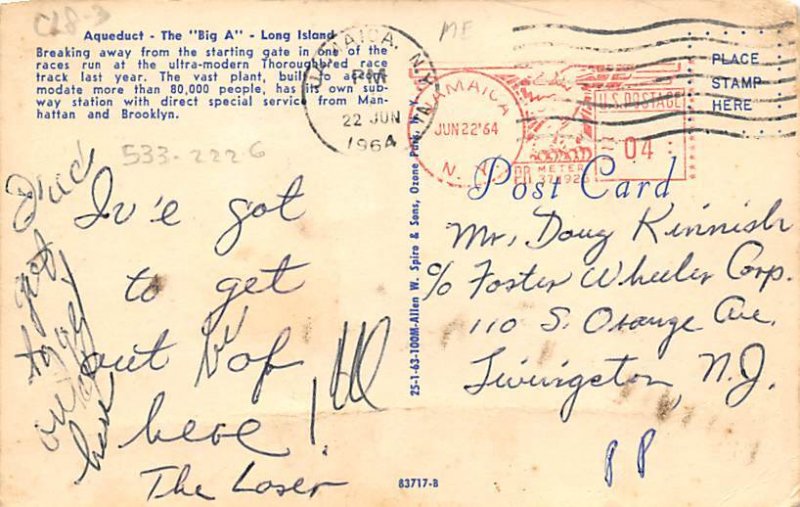 CL8-3
ME
Aqueduct - The "Big A" - Long Island
Breaking away from the starting gate in one of the
races run at the ultra-modern Thoroughbred race
track last year. The vast plant, built to accom-
modate more than 80,000 people, has its own sub-
way station with direct special service from Man-
hattan and Brooklyn.
JAMAICA, N.Y.
PM
22 JUN
1964
JAMAICA
JUN 22 '64
N. Y.
U.S. POSTAGE
04
METER
PLACE
STAMP
HERE
Post Card
533-2226
Iv'e got
to get
out of
here!
The Loser
got
to get
out
here
25-1-63-100M-Allen W. Spiro & Sons, Ozone Park, N. Y.
Mr. Doug Kinnish
c/o Foster Wheeler Corp.
110 S. Orange Ave.
Livingston, N.J.
PP
83717-B